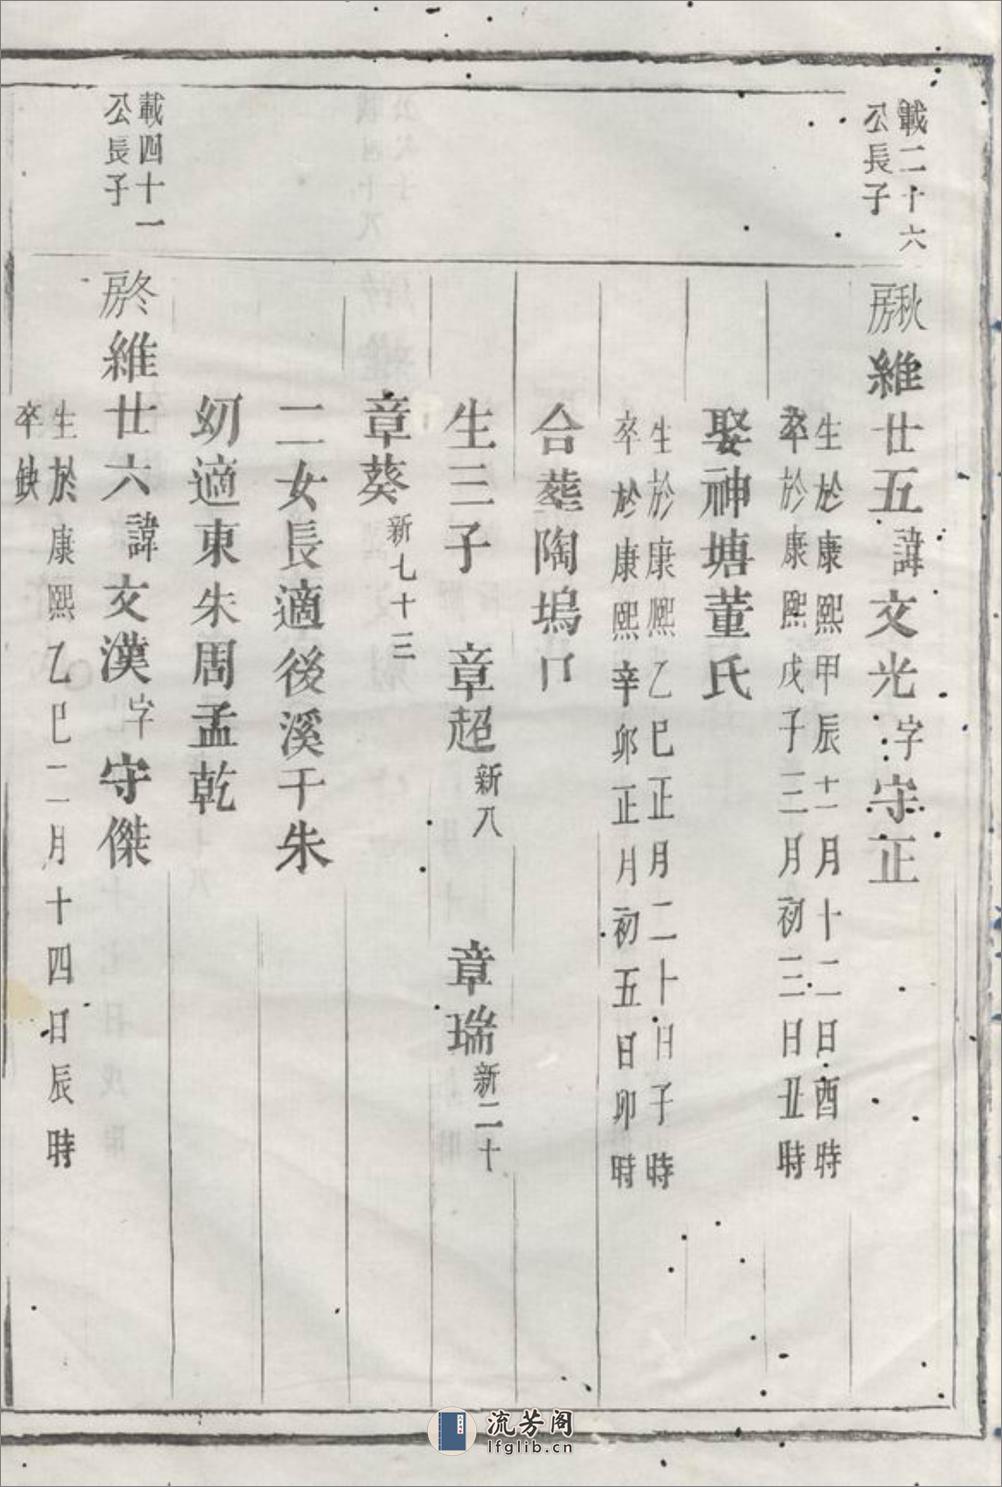 載二十六
公長子
秋房 維廿五 諱 文光 字 守正
生於康熙甲辰十一月十二日酉時
卒於康熙戊子三月初三日丑時
娶神塘董氏
生於康熙乙巳正月二十日子時
卒於康熙辛卯正月初五日卯時
合塟陶塢口
生三子 章超 新八 章瑞 新二十
章葵 新七十三
二女長適後溪干朱
㓜適東朱周孟乾
載四十一
公長子
冬房 維廿六 諱 文漢 字 守傑
生於康熙乙巳二月十四日辰時
卒缺
流芳阁
lfglib.cn